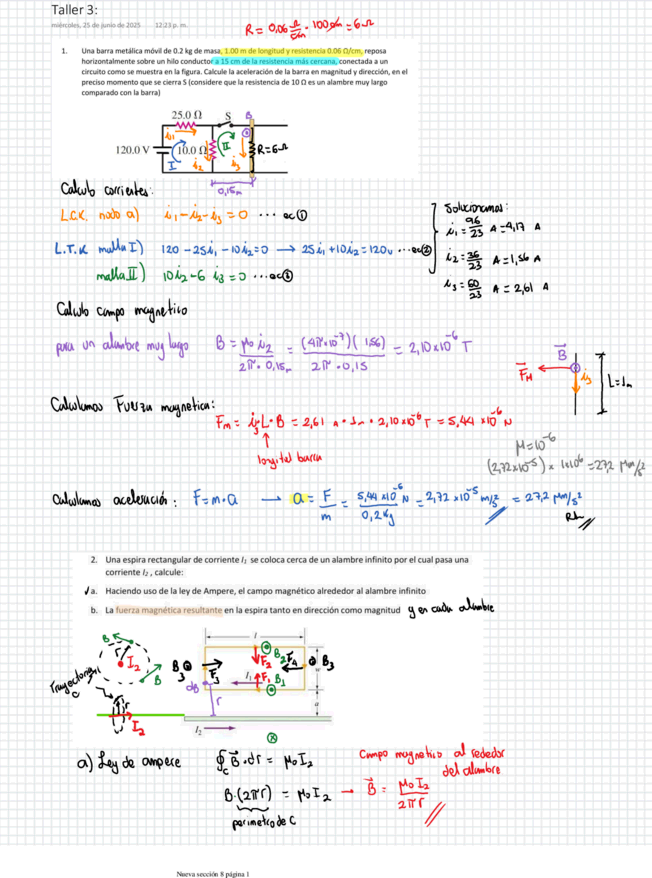 Taller 3:
miércoles, 25 de junio de 2025 12:23 p. m.
R = 0,06 Ω/cm · 100 cm = 6 Ω
1. Una barra metálica móvil de 0.2 kg de masa, 1.00 m de longitud y resistencia 0.06 Ω/cm, reposa
horizontalmente sobre un hilo conductor a 15 cm de la resistencia más cercana, conectada a un
circuito como se muestra en la figura. Calcule la aceleración de la barra en magnitud y dirección, en el
preciso momento que se cierra S (considere que la resistencia de 10 Ω es un alambre muy largo
comparado con la barra)
25.0 Ω S B
i1
120.0 V 10.0 Ω II R=6Ω
I i2 i3
0,15m
Calculo corrientes:
L.C.K. nodo a) i1 - i2 - i3 = 0 ... ec①
L.T.K malla I) 120 - 25i1 - 10i2 = 0 → 25i1 + 10i2 = 120v ... ec②
malla II) 10i2 - 6 i3 = 0 ... ec③
Solucionamos:
i1 = 96/23 A = 4,17 A
i2 = 36/23 A = 1,56 A
i3 = 60/23 A = 2,61 A
Calculo campo magnetico
para un alambre muy largo B = μo i2 / 2π · 0,15m = (4π·10⁻⁷)(1,56) / 2π · 0,15 = 2,10x10⁻⁶ T
B
FM i3 L=1m
Calculamos Fuerza magnetica:
Fm = i3 L · B = 2,61 A · 1m · 2,10x10⁻⁶ T = 5,44 x10⁻⁶ N
longitud barra
μ=10⁻⁶
(2,72x10⁻⁵) x 1x10⁶ = 27,2 μm/s²
Calculamos aceleración: F=m·a → a = F/m = 5,44 x10⁻⁶ N / 0,2 kg = 2,72 x10⁻⁵ m/s² = 27,2 μm/s²
2. Una espira rectangular de corriente I1 se coloca cerca de un alambre infinito por el cual pasa una
corriente I2 , calcule:
a. Haciendo uso de la ley de Ampere, el campo magnético alrededor al alambre infinito
b. La fuerza magnética resultante en la espira tanto en dirección como magnitud y en cada alambre
B r I2 B
l
B3 F3 F2 B2 F4 B3
I1 F1 B1
dB r
Trayectoria
C
r I2
I2
a) Ley de ampere ∮c B·dr = μo I2
B·(2πr) = μo I2 → B = μo I2 / 2πr
perimetro de C
Campo magnetico alrededor
del alambre
Nueva sección 8 página 1